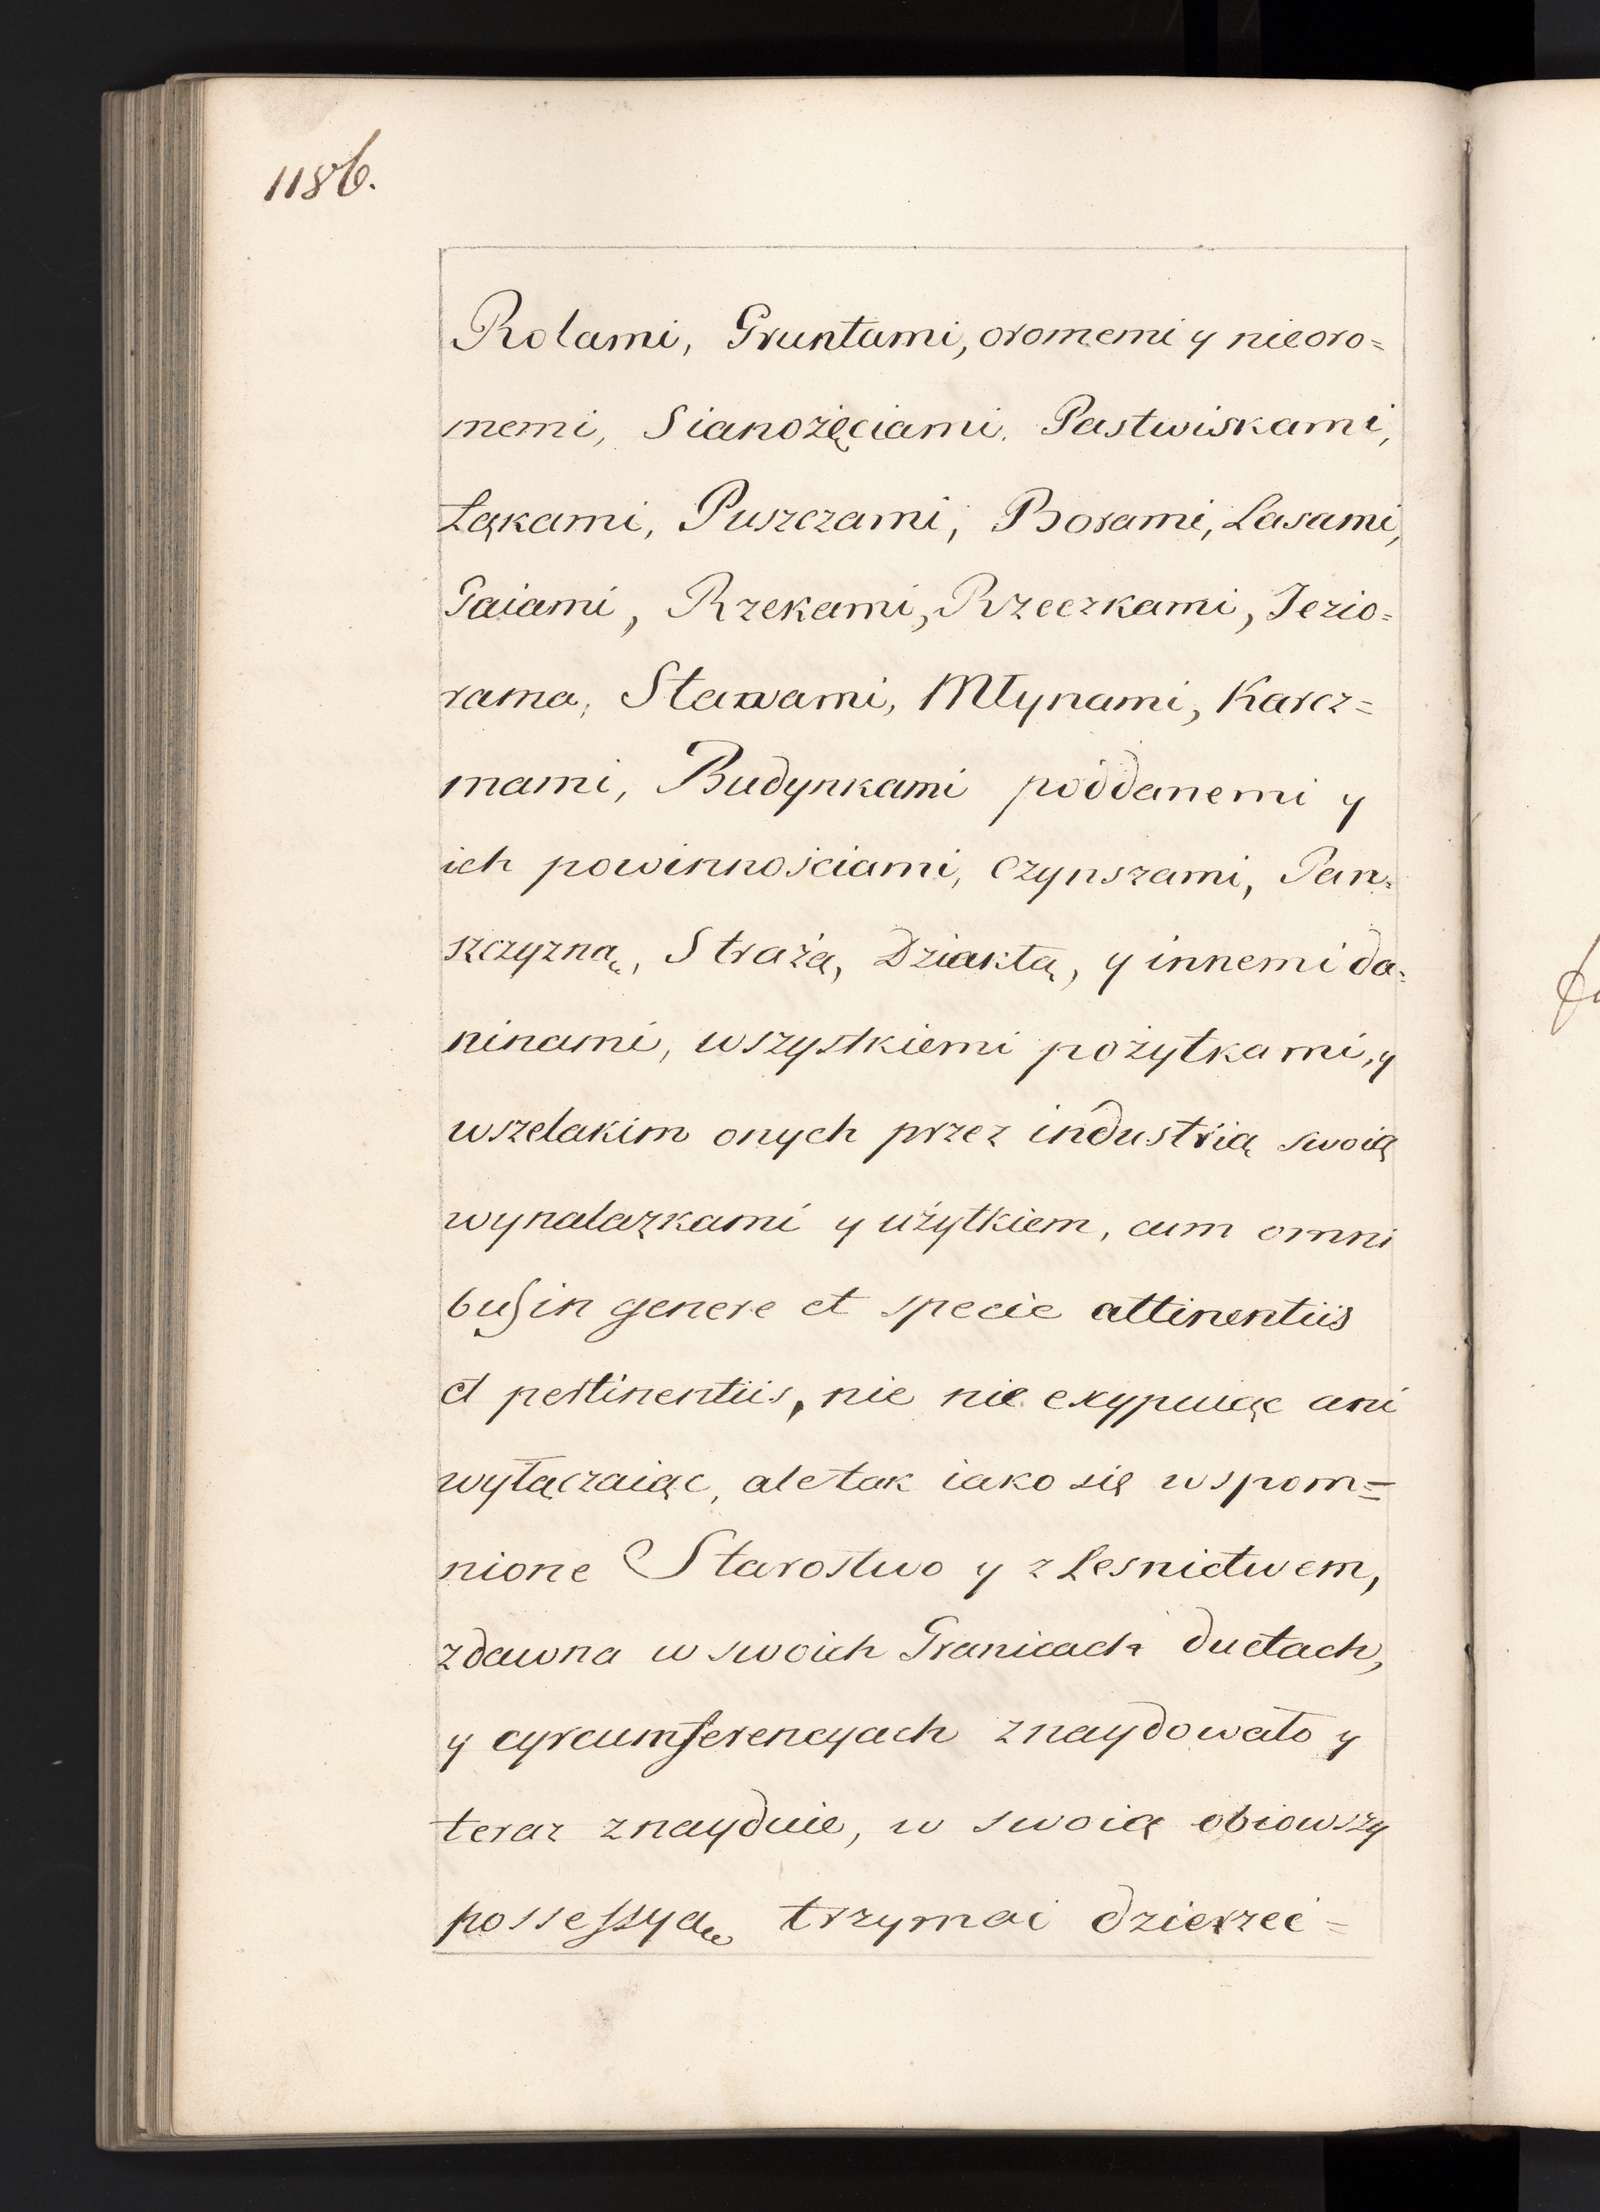 1186.
Rolami, Gruntami, oromemi y nieoro=
memi, Sianożęciami. Pastwiskami,
Łąkami, Puszczami, Borami, Lasami,
Gaiami, Rzekami, Rzeczkami, Jezio=
rama, Stawami, Młynami, Karcz=
mami, Budynkami poddanemi y
ich powinnościami, Czynszami, Pan=
szczyzną, Strażą, Dziakłą, y innemi da=
ninami, wszystkiemi pożytkami, y
wszelakim onych przez industrią swoią
wynalazkami y użytkiem, cum omni
bus in genere et specie attinentiis
et pertinentiis, nic nie exypuiąc ani
wyłączaiąc, ale tak iako się wspom=
nione Starostwo y z Lesnictwem,
zdawna w swoich Granicach ductach,
y cyrcumferencyach znaydowało y
teraz znayduie, w swoią obiowszy
possessyą trzymai dzierzec=